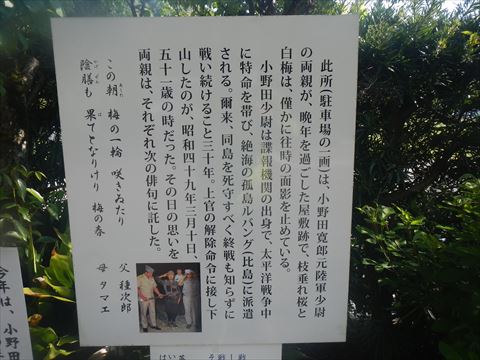 此所(駐車場の一画)は、小野田寛郎元陸軍少尉
の両親が、晩年を過ごした屋敷跡で、枝垂れ桜と
白梅は、僅かに往時の面影を止めている。
小野田少尉は諜報機関の出身で、太平洋戦争中
に特命を帯び、絶海の孤島ルバング(比島)に派遣
される。爾来、同島を死守すべく終戦も知らずに
戦い続けること三十年。上官の解除命令に接し下
山したのが、昭和四十九年三月十日、
五十一歳の時だった。その日の思いを
両親は、それぞれ次の俳句に託した。
この朝 梅の一輪 咲きゐたり
父 種次郎
陰膳も 果てとなりけり 梅の春
母 タマエ
今年は、小野田